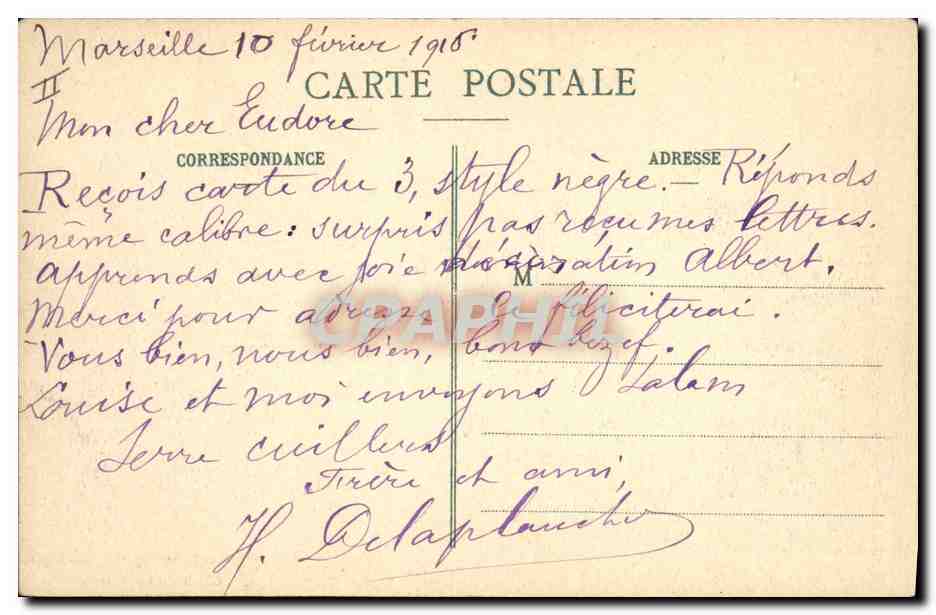 Marseille 10 février 1916
II
CARTE POSTALE
Mon cher Eudore
CORRESPONDANCE
ADRESSE
Reçois carte du 3, style nègre. — Réponds
même calibre : surpris pas reçu mes lettres.
apprends avec joie décoration Albert.
M
Merci pour adresse le féliciterai.
Vous bien, nous bien, bono bezef.
Louise et moi envoyons Salam
Serre cuillers
Frère et ami,
H. Delaplanche
CPAPHIL